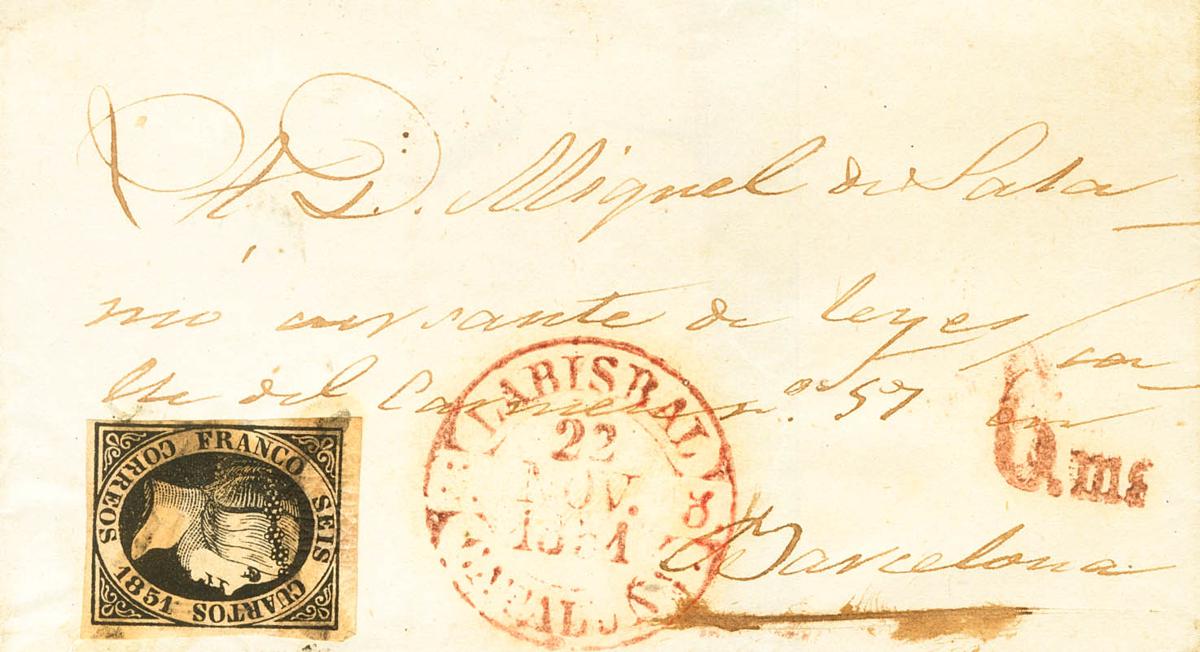 A D. Miguel de Sala
mó cursante de leyes / ca
lle del Carmen n.º 57 en
Barcelona
CORREOS FRANCO SEIS CUARTOS 1851
LABISBAL
22
NOV.
1851
6.ms